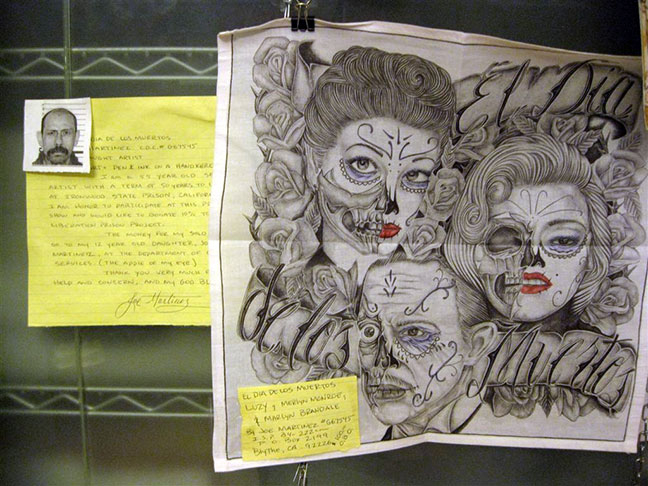 DIA DE LOS MUERTOS
MARTINEZ C.D.C.# G67545
TAUGHT ARTIST
PEN & INK ON A HANDKERC
I AM A 55 YEAR OLD
ARTIST WITH A TERM OF 50 YEARS TO
AT IRONWOOD STATE PRISON, CALIFOR
I AM HONOR TO PARTICIPATE AT THIS
SHOW AND WOULD LIKE TO DONATE 10% TO
LIBERATION PRISON PROJECT.
THE MONEY FOR MY SOLD
GO TO MY 12 YEAR OLD DAUGHTER, JO
MARTINEZ, AT THE DEPARTMENT OF
SERVICES. (THE APPLE OF MY EYE).
THANK YOU VERY MUCH
HELP AND CONCERN, AND MAY GOD BL
Joe Martinez
El Dia
de los
Muertos
EL DIA DE LOS MUERTOS
LUZY Y MERLYN MONROE,
& MARLYN BRANDALE
By JOE MARTINEZ #G67545
P.O. BOX 2199
BlytHe, CA. 92226